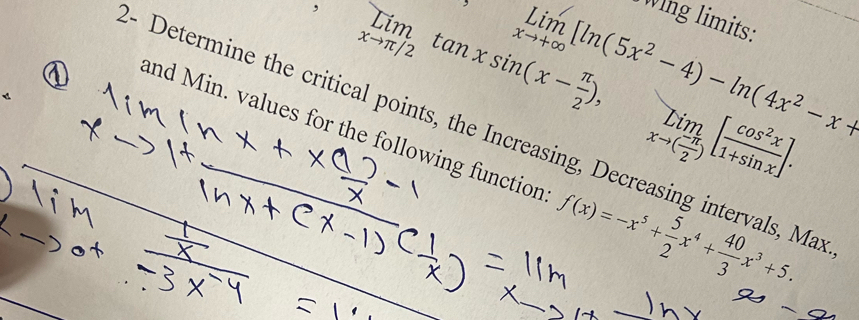 wing limits:
Lim x→π/2 tan x sin(x − π/2), Lim x→+∞ [ln(5x² − 4) − ln(4x² − x +
Lim x→(−π/2) [cos²x / 1+sin x].
2- Determine the critical points, the Increasing, Decreasing intervals, Max.,
and Min. values for the following function: f(x) = −x⁵ + 5/2 x⁴ + 40/3 x³ + 5.
① lim x→1+ ln x + x(1/x) − 1 / ln x + (x−1)(1/x) = lim x→1+ ln x
lim x→0+ 1/x / −3x⁻⁴ =
∞ − ∞